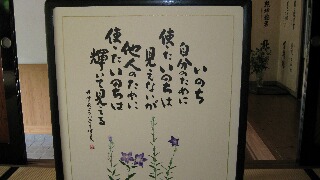 いのち
自分のために
使ったいのちは
見えないが
他人のために
使ったいのちは
輝いて見える